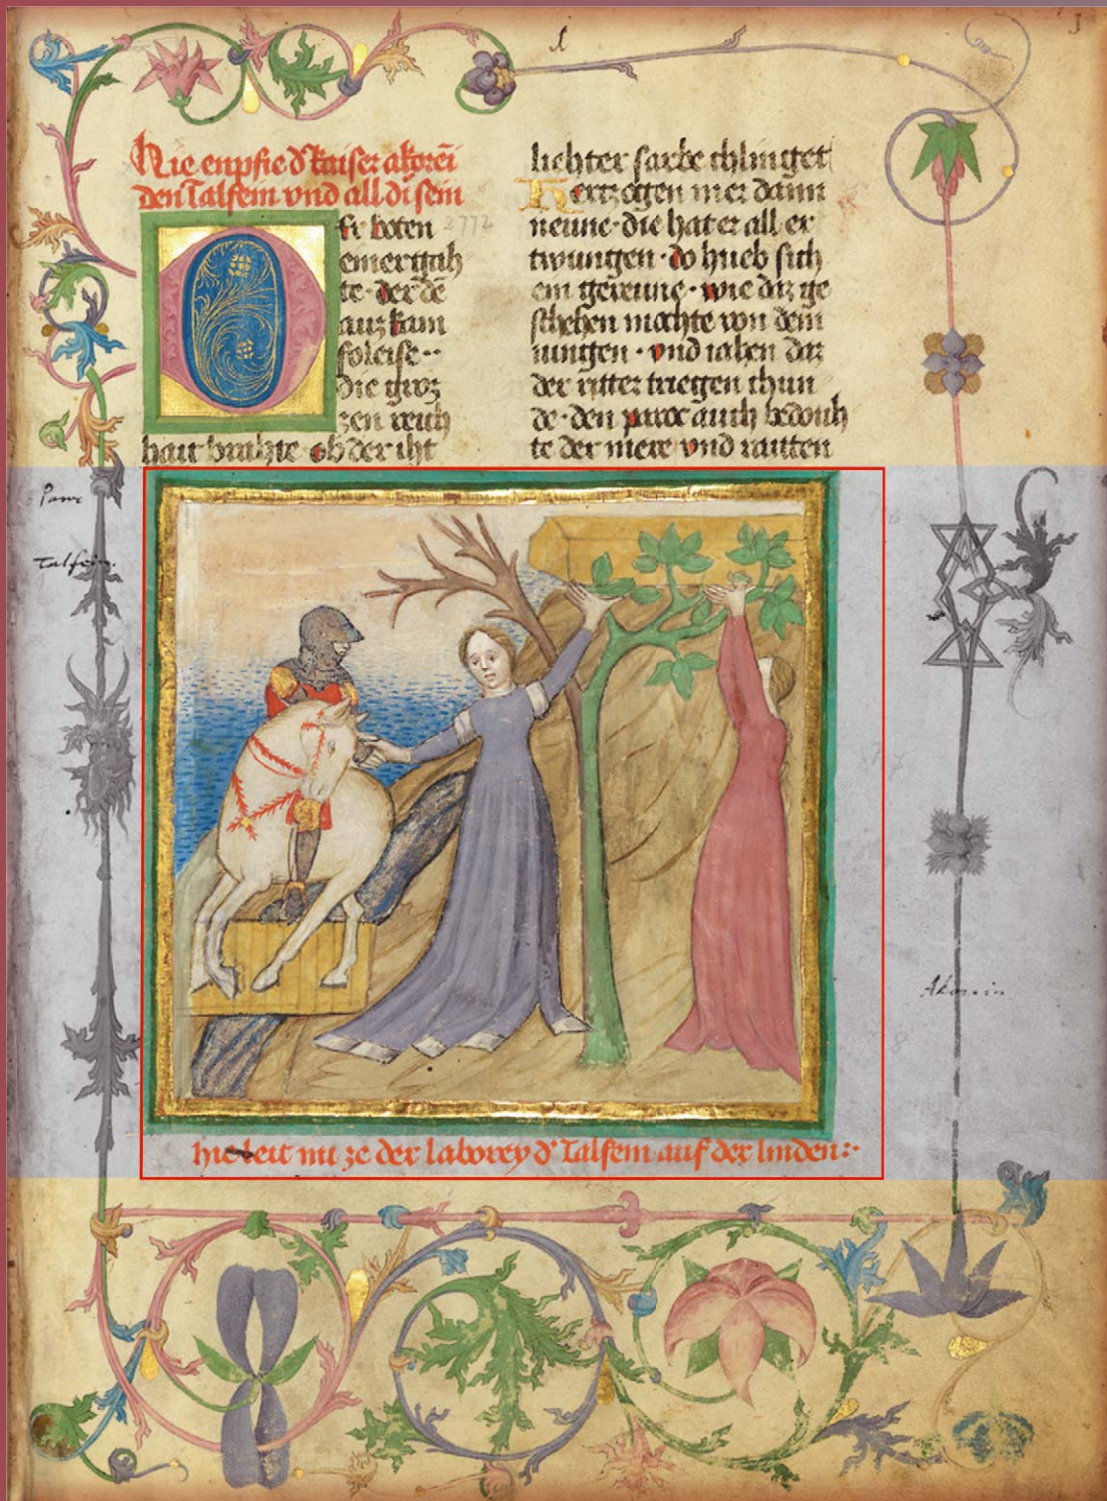 Wie enpfie d' kaiser akorei
den Talfein vnd all di sein
2772
Di boten
emertzah
te · der de
auz kam
foleise ··
Die groz
zen reich
hait brahte · ob der iht
lichter farbe chlinget
Hertzogen mer dann
neune · die hat er all er
twungen · do hueb sich
ein gereune · wie daz ge
schehen mochte von dem
iungen · vnd iahen daz
der ritter triegen chun
de · den paroc auch bedouh
te der mere vnd rauten
Talfein.
Akarin
hie leit nu ze der laborey d' Talfein auf der linden :·